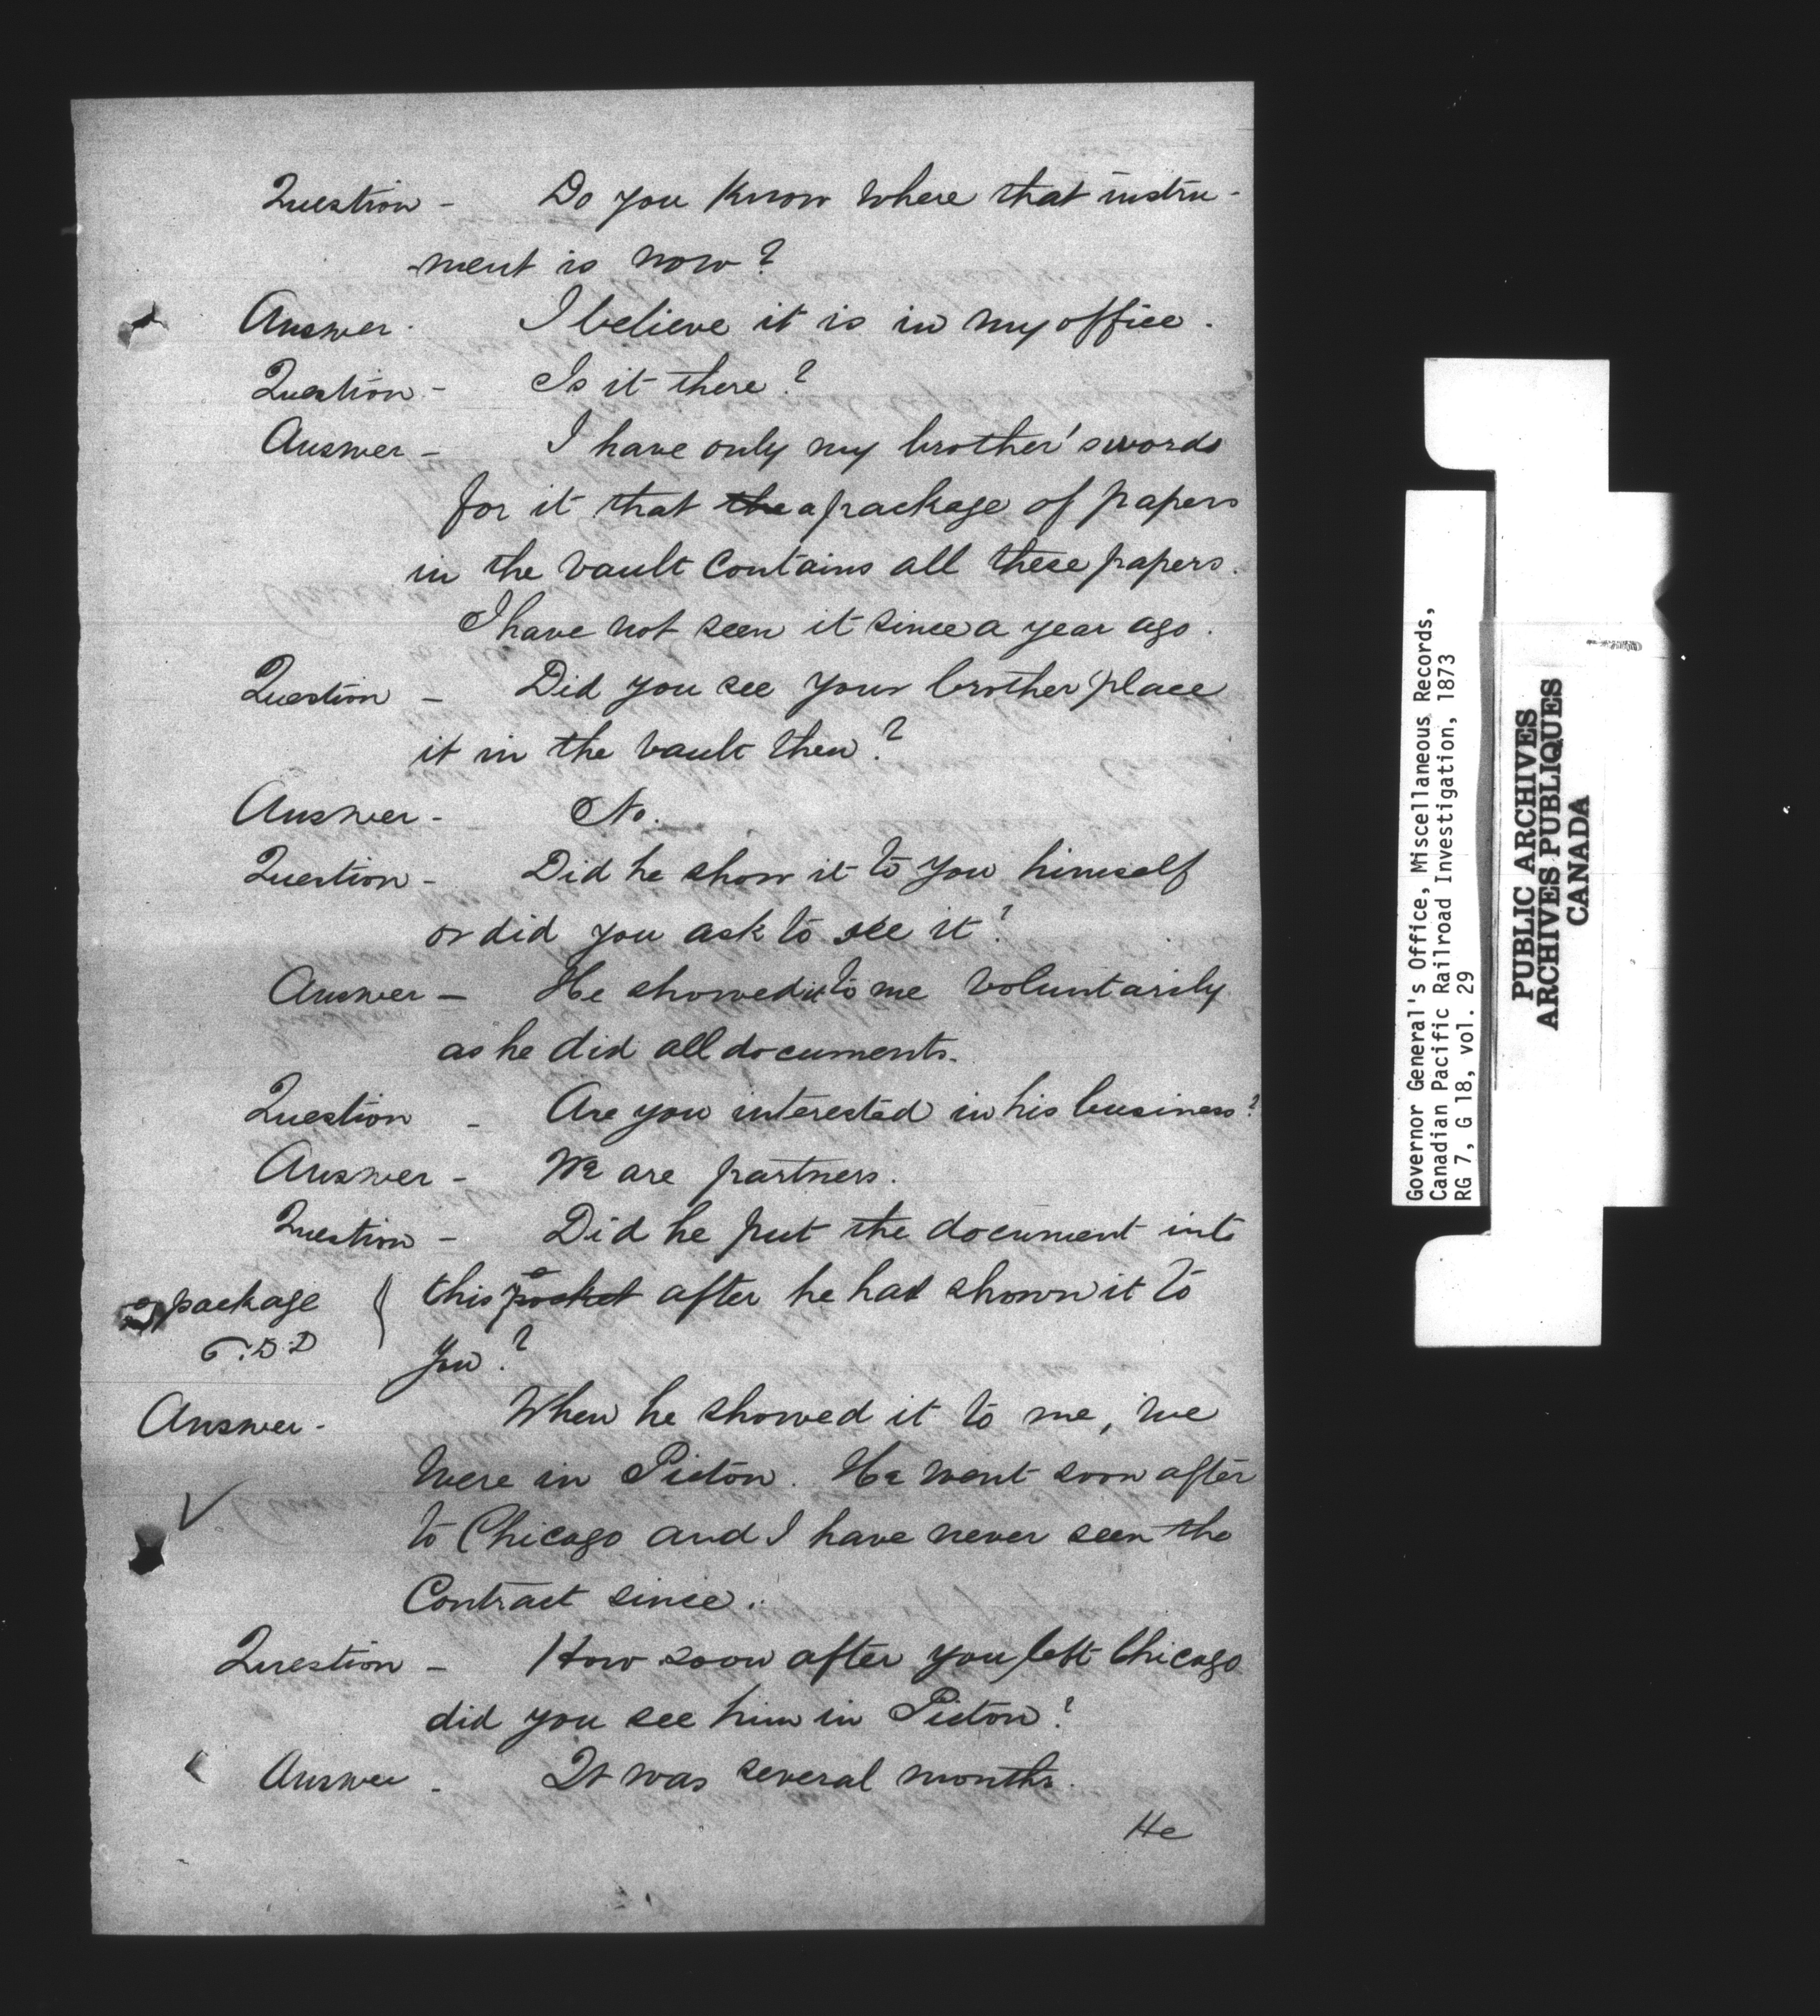 Question - Do you know where that instru-
-ment is now?
Answer. I believe it is in my office.
Question - Is it there?
Answer - I have only my brother's words
for it that the a package of papers
in the vault contains all these papers.
I have not seen it since a year ago.
Question - Did you see your brother place
it in the vault then?
Answer - No.
Question - Did he show it to you himself
or did you ask to see it?
Answer - He showed it to me voluntarily
as he did all documents.
Question - Are you interested in his business?
Answer - We are partners.
Question - Did he put the document into
package { this pocket after he had shown it to
C.D.D you?
Answer - When he showed it to me, we
were in Picton. He went soon after
to Chicago and I have never seen the
Contract since.
Question - How soon after you left Chicago
did you see him in Picton?
Answer - It was several months.
He
Governor General's Office, Miscellaneous Records,
Canadian Pacific Railroad Investigation, 1873
RG 7, G 18, vol. 29
PUBLIC ARCHIVES
ARCHIVES PUBLIQUES
CANADA